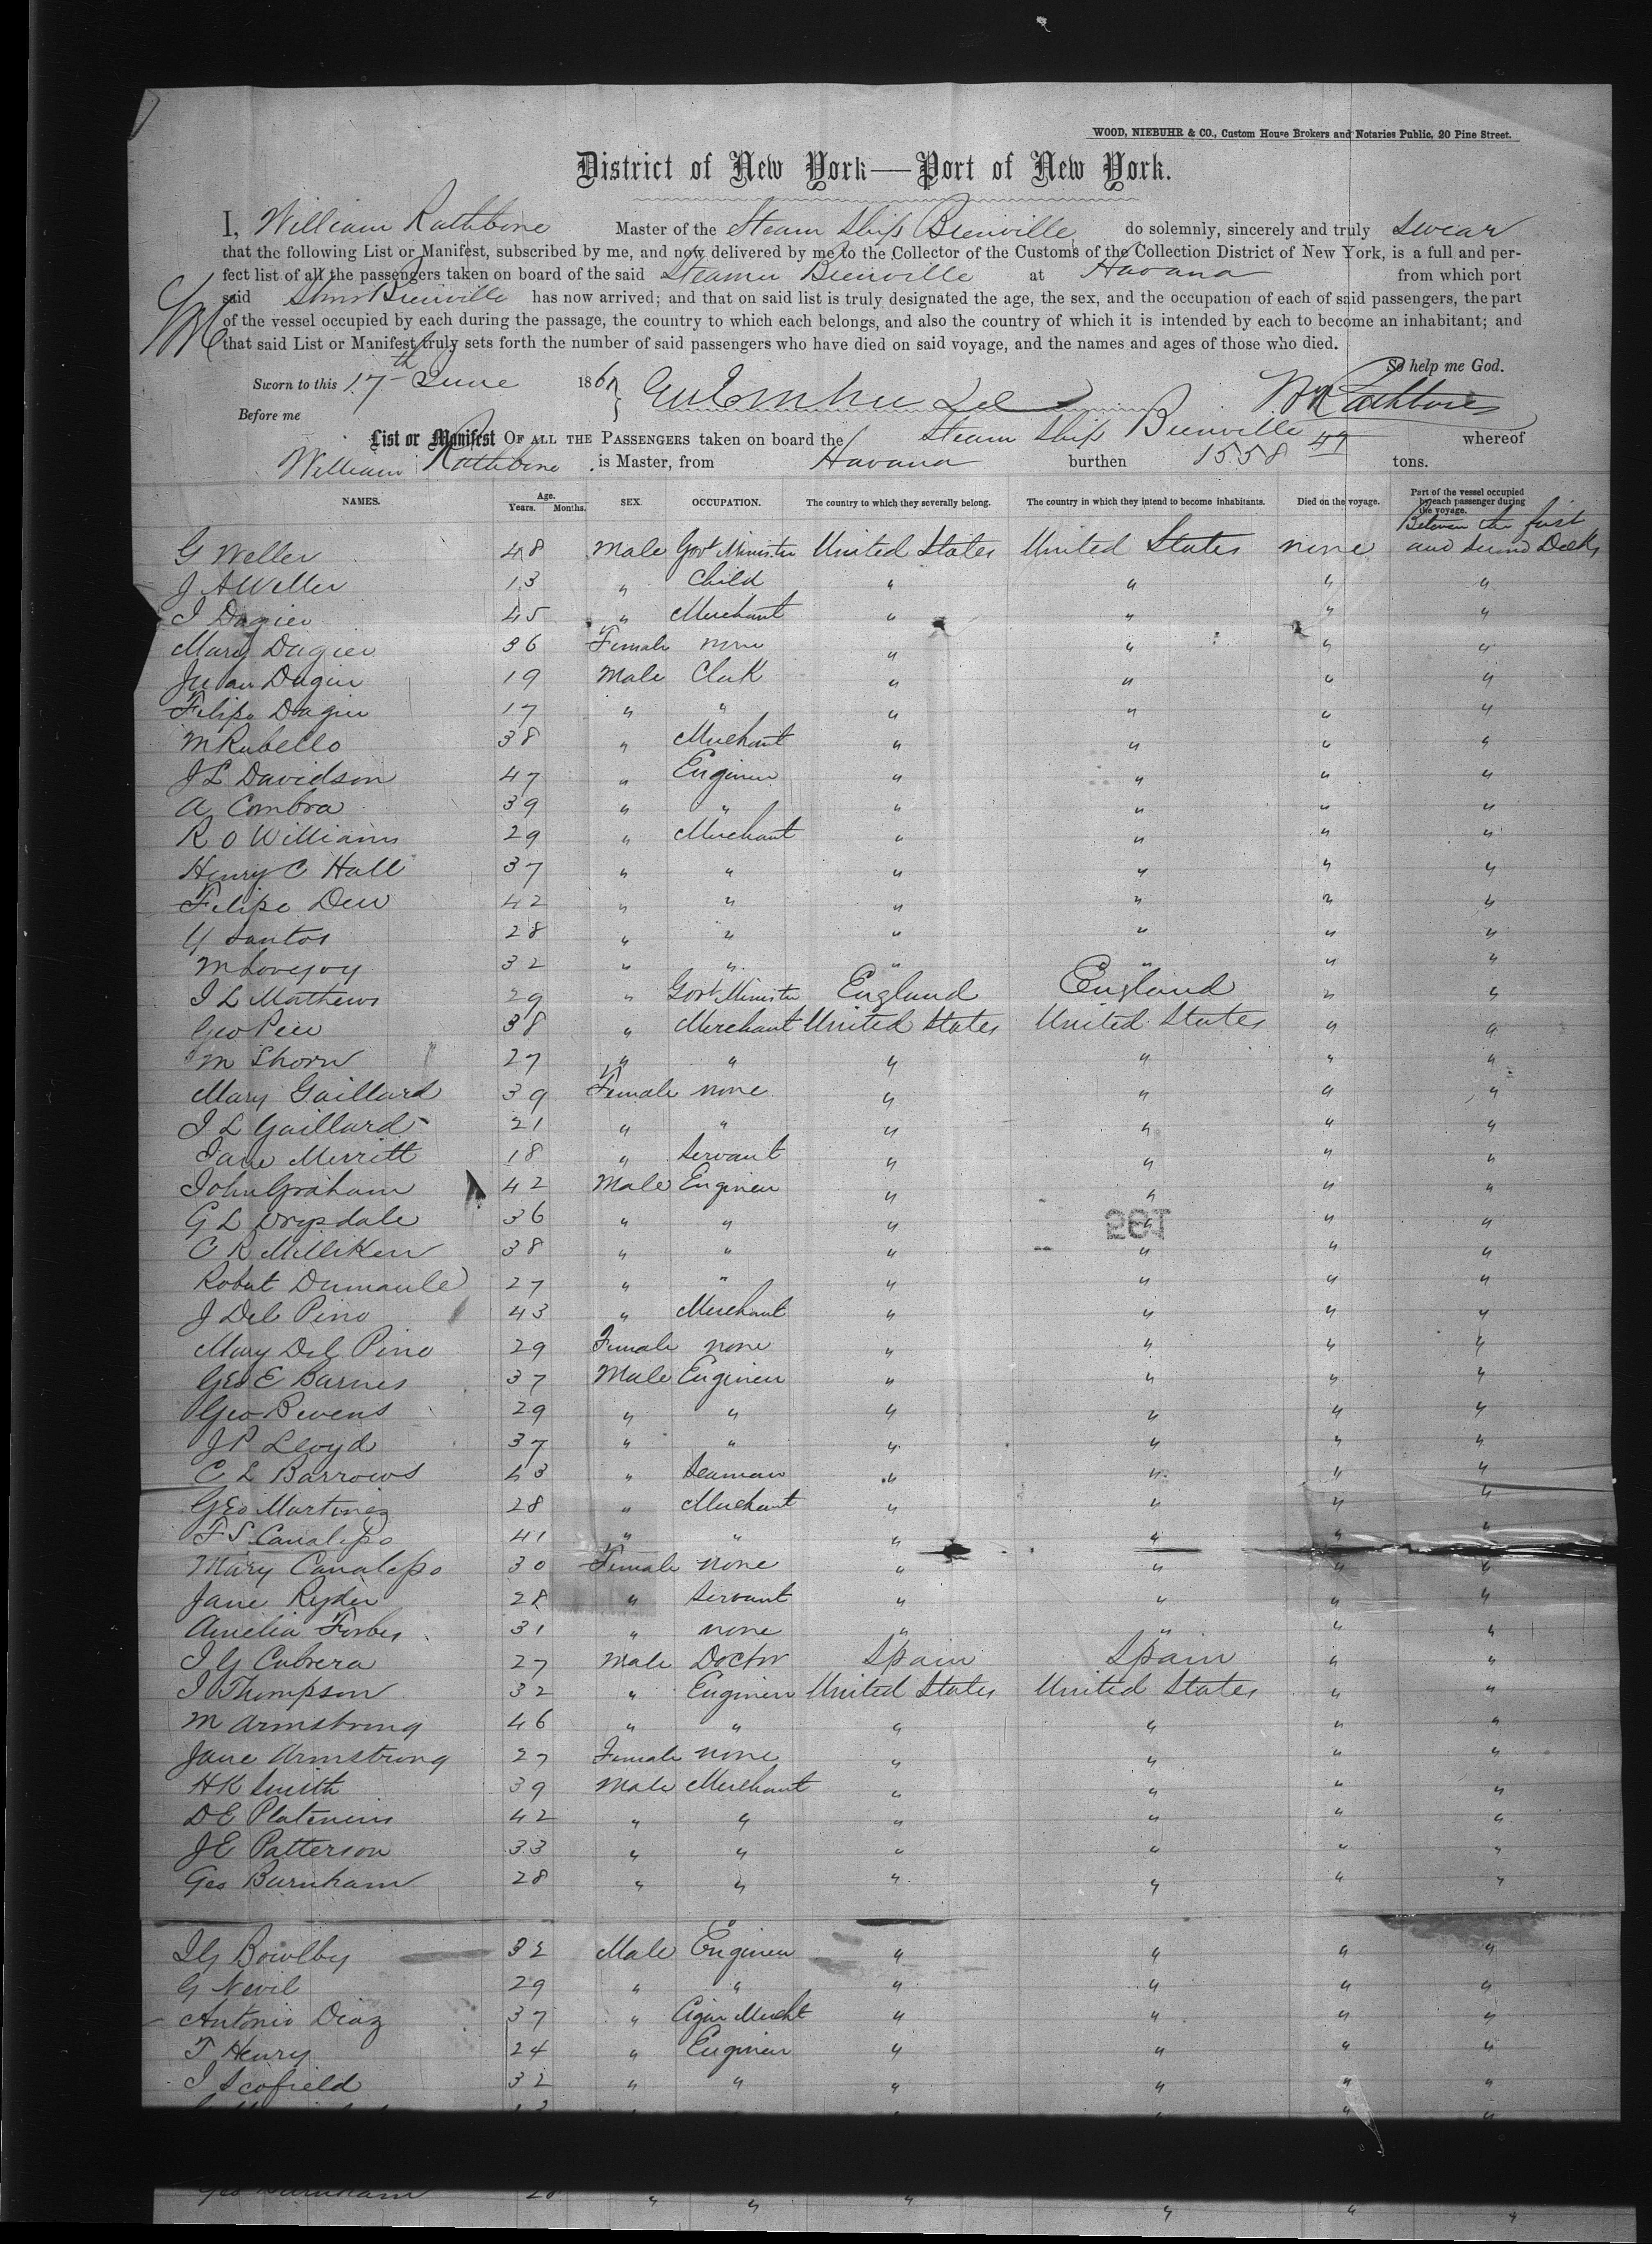 WOOD, NIEBUHR & CO., Custom House Brokers and Notaries Public, 20 Pine Street.
District of New York—Port of New York.
I, William Rathbone Master of the Steam Ship Bienville do solemnly, sincerely and truly swear
that the following List or Manifest, subscribed by me, and now delivered by me to the Collector of the Customs of the Collection District of New York, is a full and per-
fect list of all the passengers taken on board of the said Steamer Bienville at Havana from which port
said Stmr Bienville has now arrived; and that on said list is truly designated the age, the sex, and the occupation of each of said passengers, the part
of the vessel occupied by each during the passage, the country to which each belongs, and also the country of which it is intended by each to become an inhabitant; and
that said List or Manifest truly sets forth the number of said passengers who have died on said voyage, and the names and ages of those who died.
So help me God.
Sworn to this 17th June 1867 Wm Rathbone
Before me
List or Manifest OF ALL THE PASSENGERS taken on board the Steam Ship Bienville whereof
William Rathbone is Master, from Havana burthen 1558 49 tons.
NAMES. Age. Years. Months. SEX. OCCUPATION. The country to which they severally belong. The country in which they intend to become inhabitants. Died on the voyage. Part of the vessel occupied by each passenger during the voyage.
G Weller 48 Male Govt Minister United States United States none Between the first and second Decks
J A Weller 13 " Child " " " "
I Dagier 45 " Merchant " " " "
Mary Dagier 36 Female none " " " "
Juan Dagier 19 Male Clerk " " " "
Filipe Dagier 17 " " " " " "
M Rubello 38 " Merchant " " " "
J L Davidson 47 " Engineer " " " "
A Combra 39 " " " " " "
R O Williams 29 " Merchant " " " "
Henry C Hall 37 " " " " " "
Filipe Deu 42 " " " " " "
Y Santos 28 " " " " " "
M Lovejoy 32 " " " " " "
I L Mathews 29 " Govt Minister England England " "
Geo Peu 38 " Merchant United States United States " "
M Shorn 27 " " " " " "
Mary Gaillard 39 Female none " " " "
I L Gaillard 21 " " " " " "
Jane Merritt 18 " Servant " " " "
John Graham 42 Male Engineer " " " "
G L Drysdale 36 " " " " " "
C R Milliken 38 " " " " " "
Robert Dumaule 27 " " " " " "
J Del Pino 43 " Merchant " " " "
Mary Del Pino 29 Female none " " " "
Geo E Barnes 37 Male Engineer " " " "
Geo Bevens 29 " " " " " "
J P Lloyd 37 " " " " " "
C L Barrows 43 " Seaman " " " "
Geo Martinez 28 " Merchant " " " "
F S Canalepo 41 " " " " " "
Mary Canalepo 30 Female none " " " "
Jane Ryder 28 " Servant " " " "
Amelia Forbes 31 " none " " " "
I G Cabrera 27 Male Doctor Spain Spain " "
I Thompson 32 " Engineer United States United States " "
M Armstrong 46 " " " " " "
Jane Armstrong 27 Female none " " " "
H K Smith 39 Male Merchant " " " "
D E Platenius 42 " " " " " "
J E Patterson 33 " " " " " "
Geo Burnham 28 " " " " " "
I G Bowlby 32 Male Engineer " " " "
G Nevil 29 " " " " " "
Antonio Diaz 37 " Cigar Mercht " " " "
T Henry 24 " Engineer " " " "
I Scofield 32 " " " " " "
Geo Burnham 28 " " " " " "